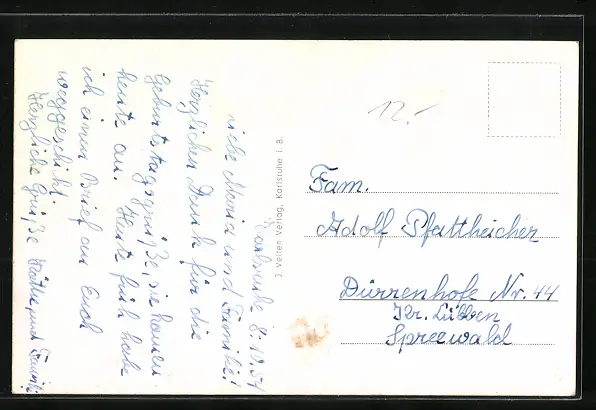 Karlsruhe 8.10.54
Liebe Maria und Familie!
Herzlichen Dank für die
Geburtstagsgrüße, sie kamen
heute an. Heute früh habe
ich einen Brief an Euch
weggeschickt.
Herzliche Grüße Käthe und Familie
J. Velten Verlag, Karlsruhe i. B.
12.-
Fam.
Adolf Pfattheicher
Dürrenhofe Nr. 44
Kr. Lübben
Spreewald